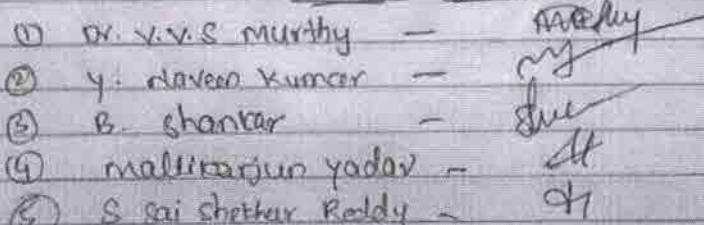 ① Dr. Y.V.S Murthy -
② Y. Naveen Kumar -
③ B. Shankar -
④ Mallikarjun yadav -
⑤ S Sai Shekhar Reddy -